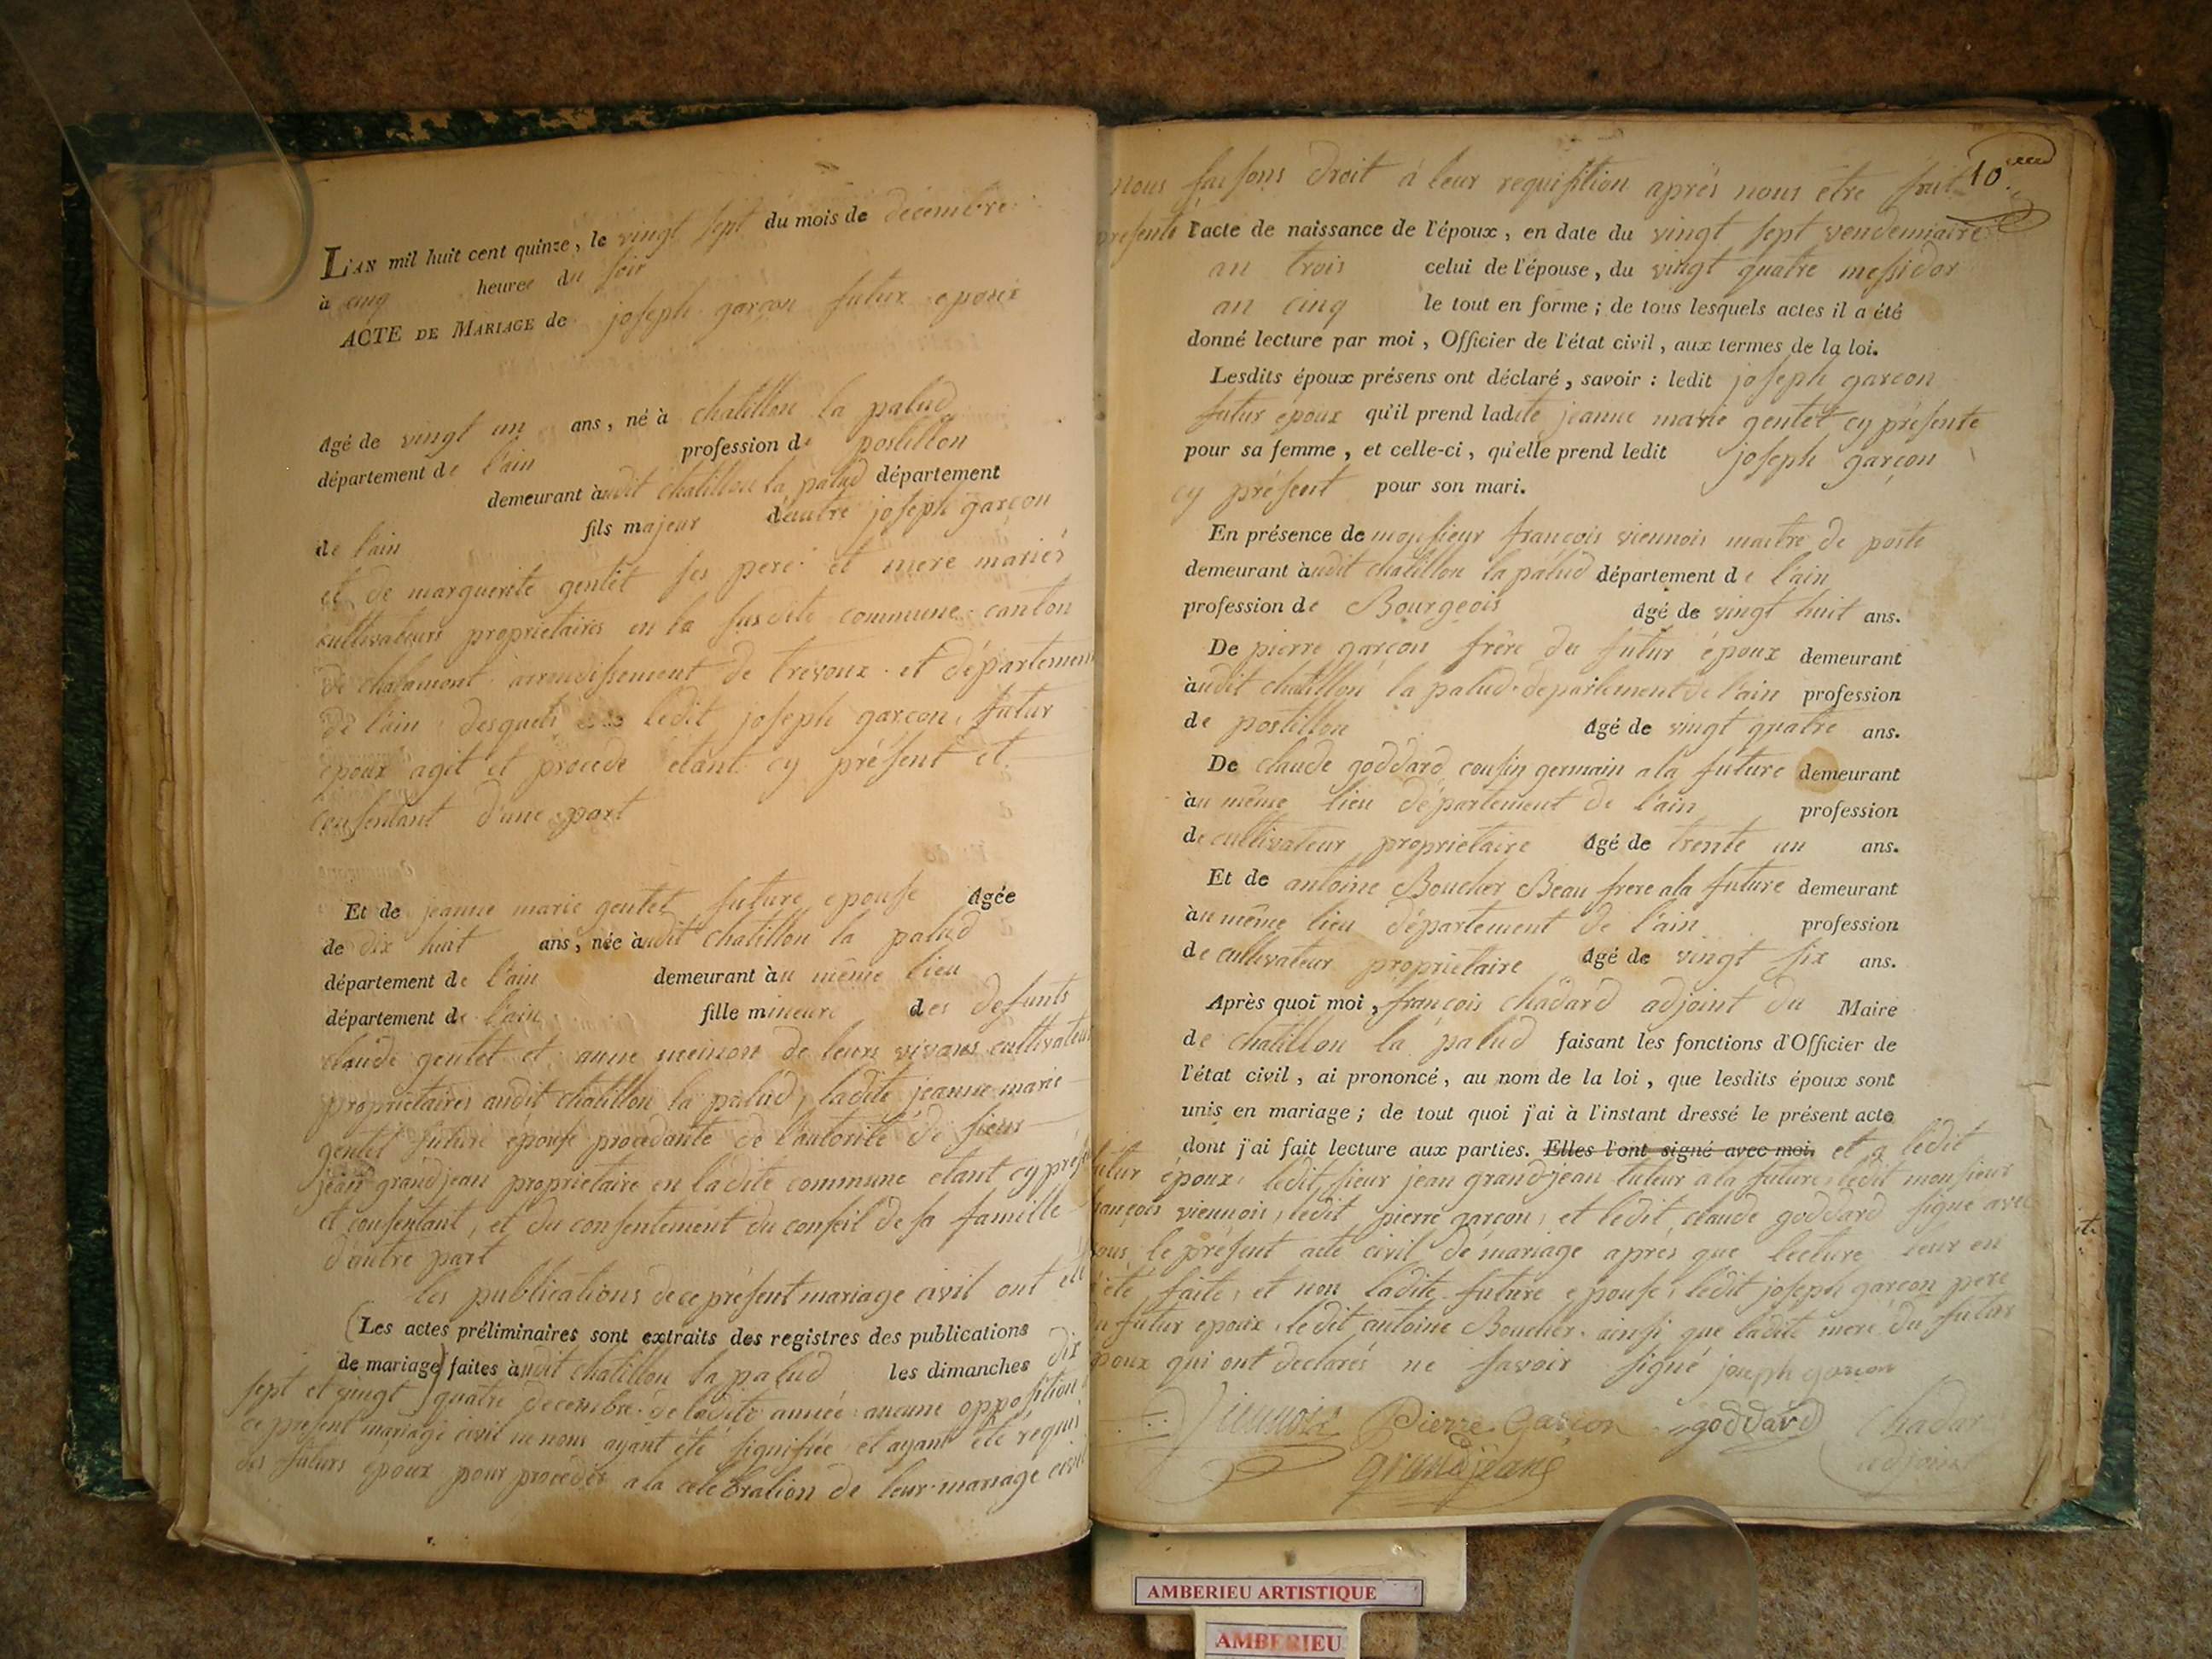 L'AN mil huit cent quinze, le vingt sept du mois de décembre
à cinq heures du soir
ACTE DE MARIAGE de joseph garçon futur epoux
âgé de vingt un ans, né à chatillon la palud
département de l'ain profession de postillon
demeurant àudit chatillon la palud département
de l'ain fils majeur d'autre joseph garçon
et de marguerite gentet ses pere et mere mariés
cultivateurs proprietaires en la susdite commune canton
de chalamont arrondissement de trevoux et département
de l'ain desquels ledit joseph garçon, futur
epoux agit et procede etant cy présent et
consentant d'une part
Et de jeanne marie gentet future epouse âgée
de dix huit ans, née àudit chatillon la palud
département de l'ain demeurant àu même lieu
département de l'ain fille mineure des defunts
claude gentet et anne de leurs vivans cultivateurs
proprietaires audit chatillon la palud, ladite jeanne marie
gentet future épouse procedante de l'autorité de sieur
jean grandjean proprietaire en ladite commune etant cy présent
et consentant, et du consentement du conseil de sa famille
d'autre part
les publications de ce présent mariage civil ont été
(Les actes préliminaires sont extraits des registres des publications
de mariage) faites àudit chatillon la palud les dimanches dix
sept et vingt quatre decembre de ladite année aucune opposition
ce présent mariage civil ne nous ayant été signifiée et ayant été requis
des futurs époux pour proceder a la celebration de leur mariage civil
10
nous faisons droit à leur requisition aprés nous être fait
presenté l'acte de naissance de l'époux, en date du vingt sept vendemiaire
an trois celui de l'épouse, du vingt quatre messidor
an cinq le tout en forme; de tous lesquels actes il a été
donné lecture par moi, Officier de l'état civil, aux termes de la loi.
Lesdits époux présens ont déclaré, savoir: ledit joseph garçon
futur époux qu'il prend ladite jeanne marie gentet cy présente
pour sa femme, et celle-ci, qu'elle prend ledit joseph garçon
cy présent pour son mari.
En présence de monsieur françois viennois maitre de poste
demeurant àudit chatillon la palud département de l'ain
profession de Bourgeois âgé de vingt huit ans.
De pierre garçon frère du futur époux demeurant
àudit chatillon la palud departement de l'ain profession
de postillon âgé de vingt quatre ans.
De claude goddard cousin germain a la future demeurant
àu même lieu département de l'ain profession
de cultivateur proprietaire âgé de trente un ans.
Et de antoine Boucher Beau frere a la future demeurant
àu même lieu département de l'ain profession
de cultivateur proprietaire âgé de vingt six ans.
Après quoi moi, françois chadard adjoint du Maire
de chatillon la palud faisant les fonctions d'Officier de
l'état civil, ai prononcé, au nom de la loi, que lesdits époux sont
unis en mariage; de tout quoi j'ai à l'instant dressé le présent acte
dont j'ai fait lecture aux parties. Elles l'ont signé avec moi. et a ledit
futur époux, ledit sieur jean grandjean tuteur a la future, ledit monsieur
françois viennois, ledit pierre garçon, et ledit claude goddard signé avec
nous le présent acte civil de mariage aprés que lecture leur en
été faite, et non ladite future epouse, ledit joseph garçon pere
du futur epoux, ledit antoine Boucher, ainsi que ladite mere du futur
époux qui ont declarés ne savoir signé joseph garçon
Viennois Pierre Garcon goddard Chadar
grandjean adjoint
AMBERIEU ARTISTIQUE
AMBERIEU